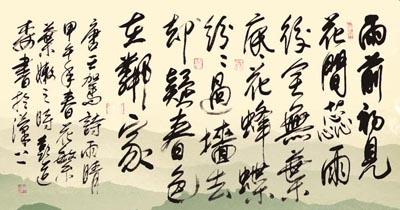 雨前初見
花間蕊雨
後全無葉
底花蜂蝶
紛〻過墻去
却疑春色
在鄰家
唐王駕詩雨晴
甲午年春花繁
葉嫩之時
書於漢上